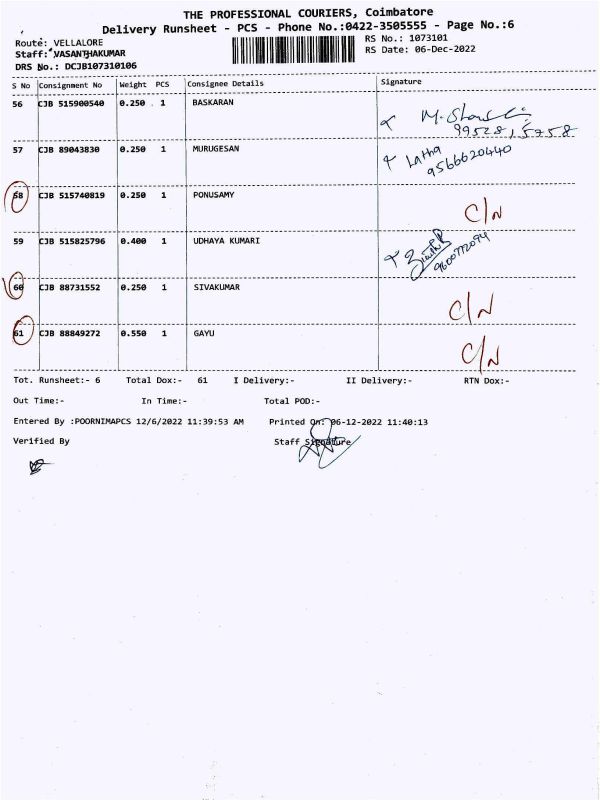 THE PROFESSIONAL COURIERS, Coimbatore
Delivery Runsheet - PCS - Phone No.:0422-3505555 - Page No.:6
Route: VELLALORE
RS No.: 1073101
Staff: VASANTHAKUMAR
RS Date: 06-Dec-2022
DRS No.: DCJB107310106
S No Consignment No Weight PCS Consignee Details Signature
56 CJB 515900540 0.250 1 BASKARAN
99528 15758
57 CJB 89043830 0.250 1 MURUGESAN
Latha
9566620440
58 CJB 515740819 0.250 1 PONUSAMY
C/N
59 CJB 515825796 0.400 1 UDHAYA KUMARI
9600772094
60 CJB 88731552 0.250 1 SIVAKUMAR
C/N
61 CJB 88849272 0.550 1 GAYU
C/N
Tot. Runsheet:- 6 Total Dox:- 61 I Delivery:- II Delivery:- RTN Dox:-
Out Time:- In Time:- Total POD:-
Entered By :POORNIMAPCS 12/6/2022 11:39:53 AM Printed On: 06-12-2022 11:40:13
Verified By Staff Signature